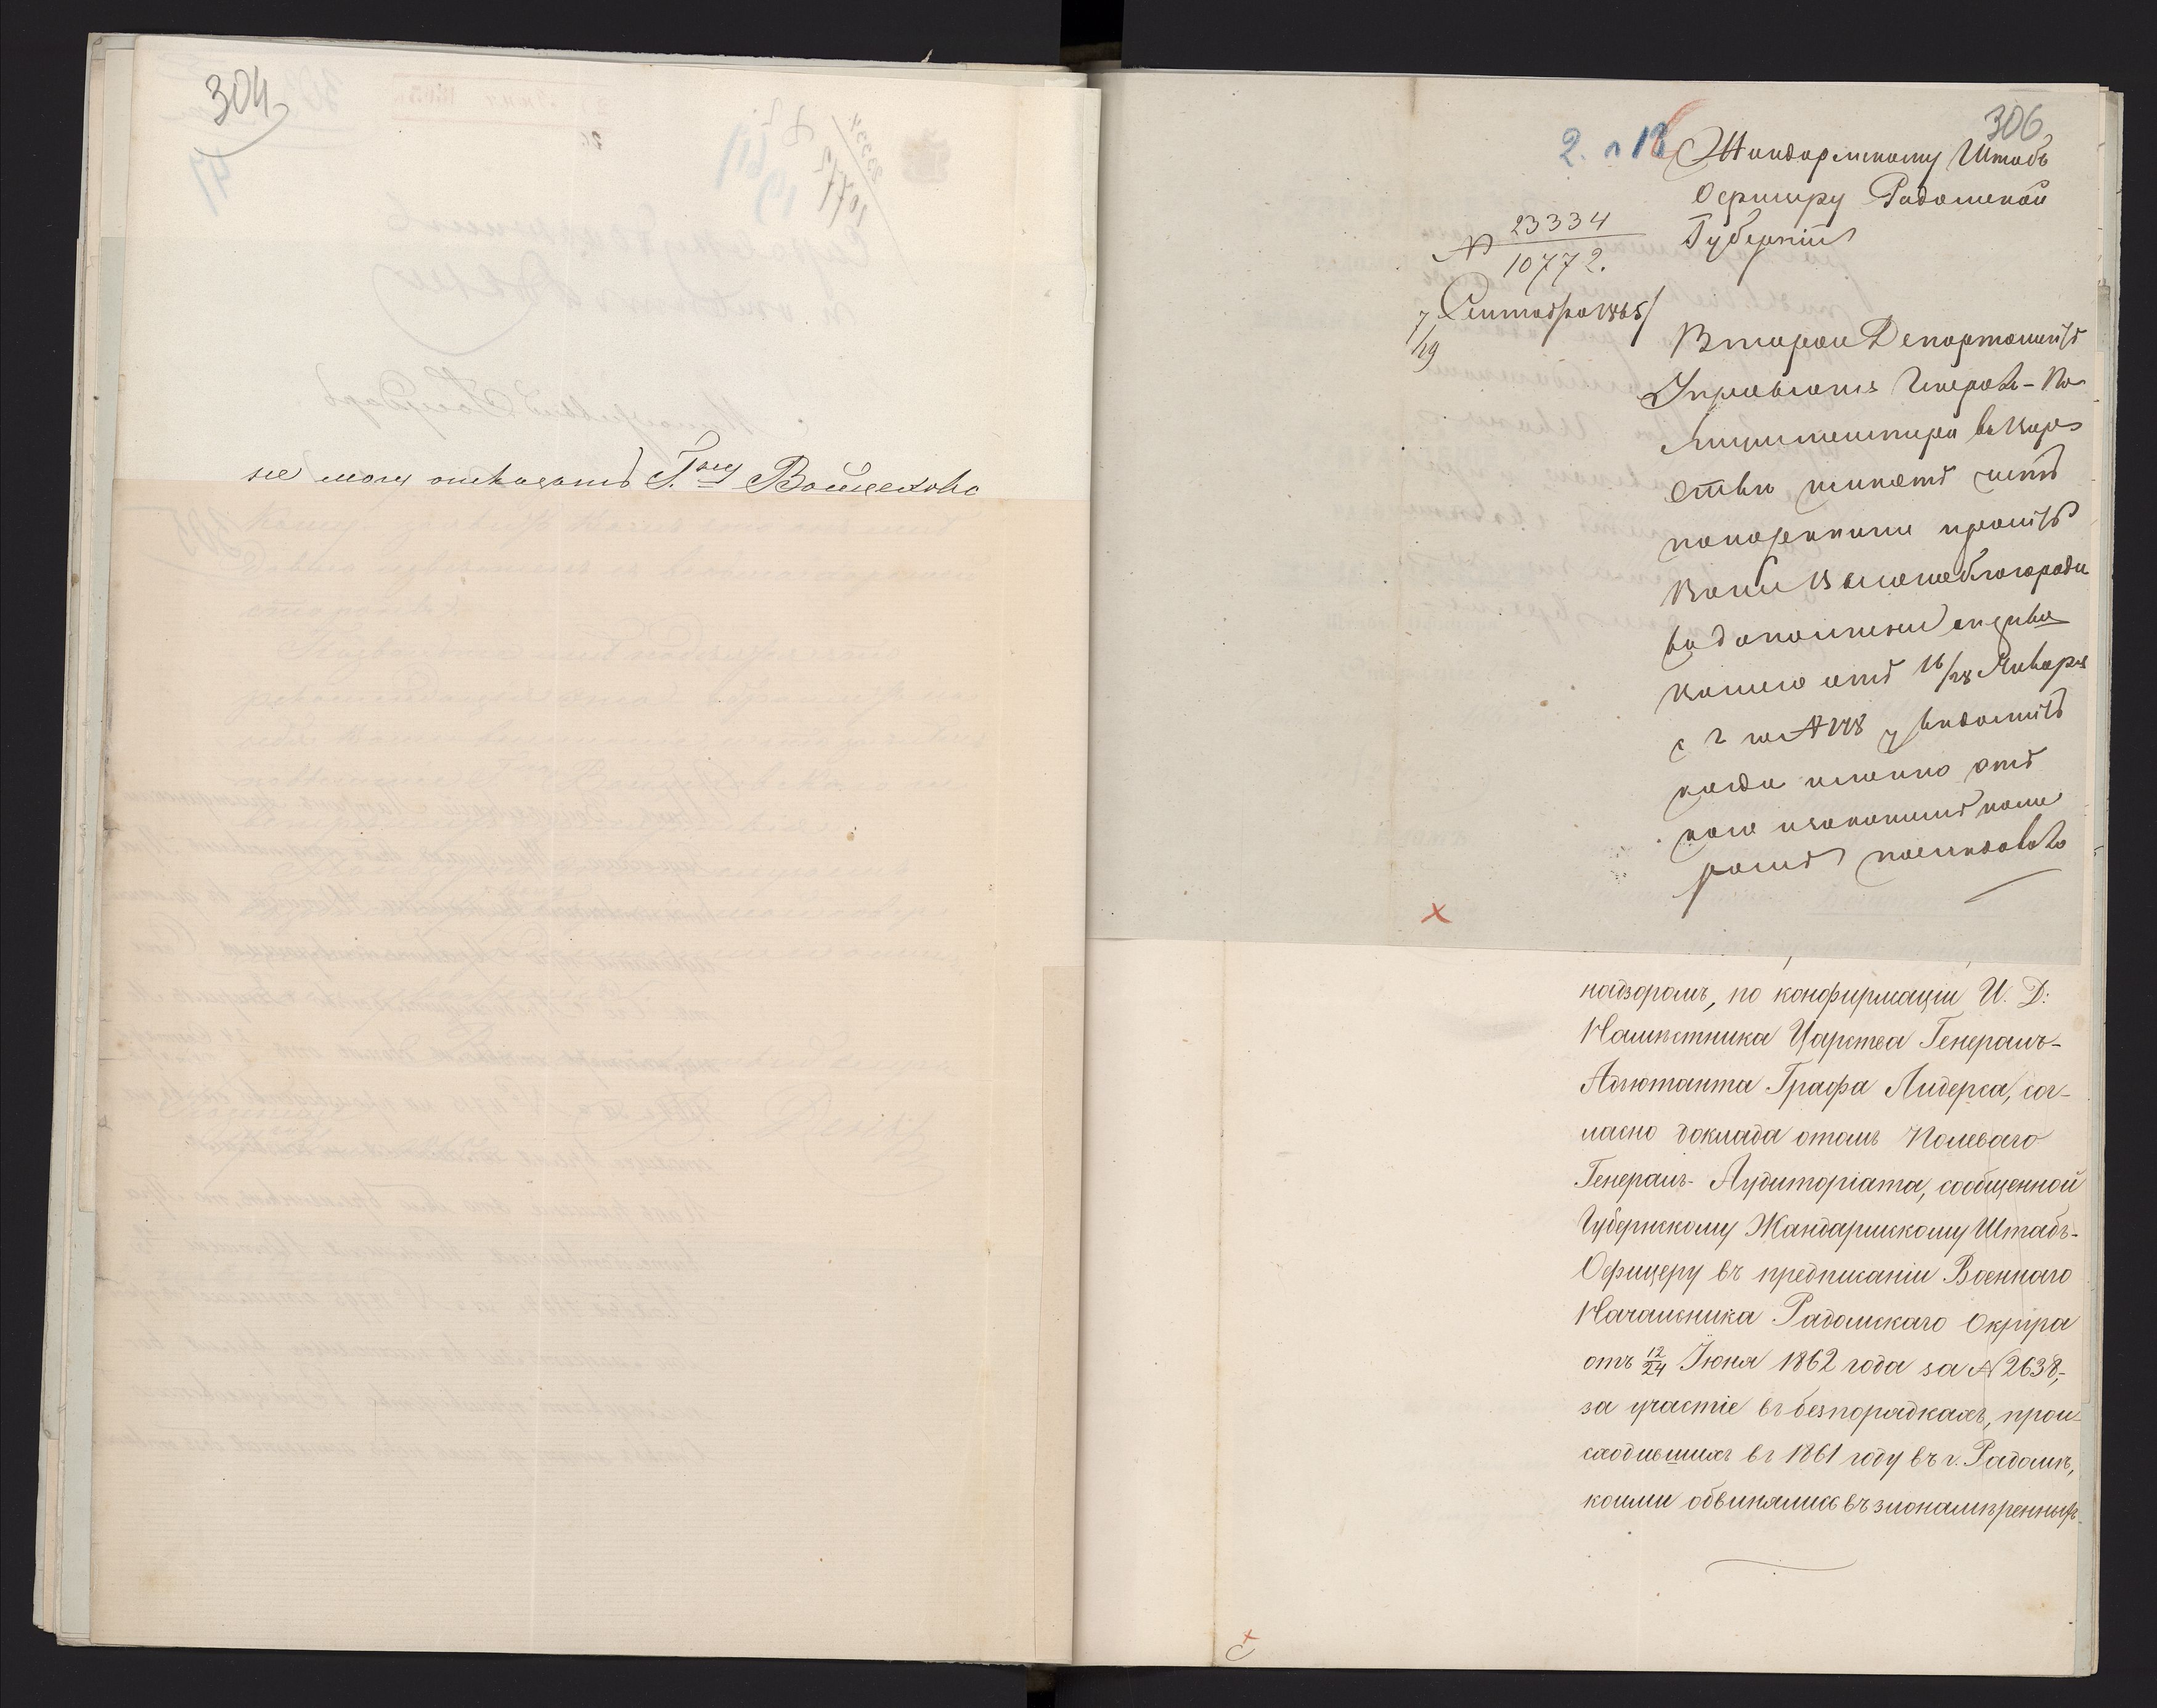 304
не могу отвечать Г.ну Войцеховс
306
2. п 13
Жандармскому Штабъ
Офицеру Радомской
Губерніи
№ 23334
10772.
7/19 Сентября 1865
Второй Департаментъ
Управленія Генералъ-По
лициймейстера въ Цар
ствѣ имѣетъ честь
покорнѣйше просить
Ваше Высокоблагороді
въ дополненіи отзыва
Вашего отъ 16/28 Января
с г за № 148 увѣдомить
когда именно отъ
кого и за какимъ номе
ромъ послѣдовало
надзоромъ, по конфирмаціи И. Д:
Намѣстника Царства Генералъ-
Адъютанта Графа Лидерса, сог-
ласно доклада о томъ Полеваго
Генералъ-Аудиторіата, сообщенной
Губернскому Жандармскому Штабъ-
Офицеру въ предписаніи Военнаго
Начальника Радомскаго Округа
отъ 12/24 Іюня 1862 года за № 2638,-
за участіе въ безпорядкахъ, прои-
сходившихъ въ 1861 году въ г. Радомѣ,
коими обвинялись въ злонамѣренныхъ